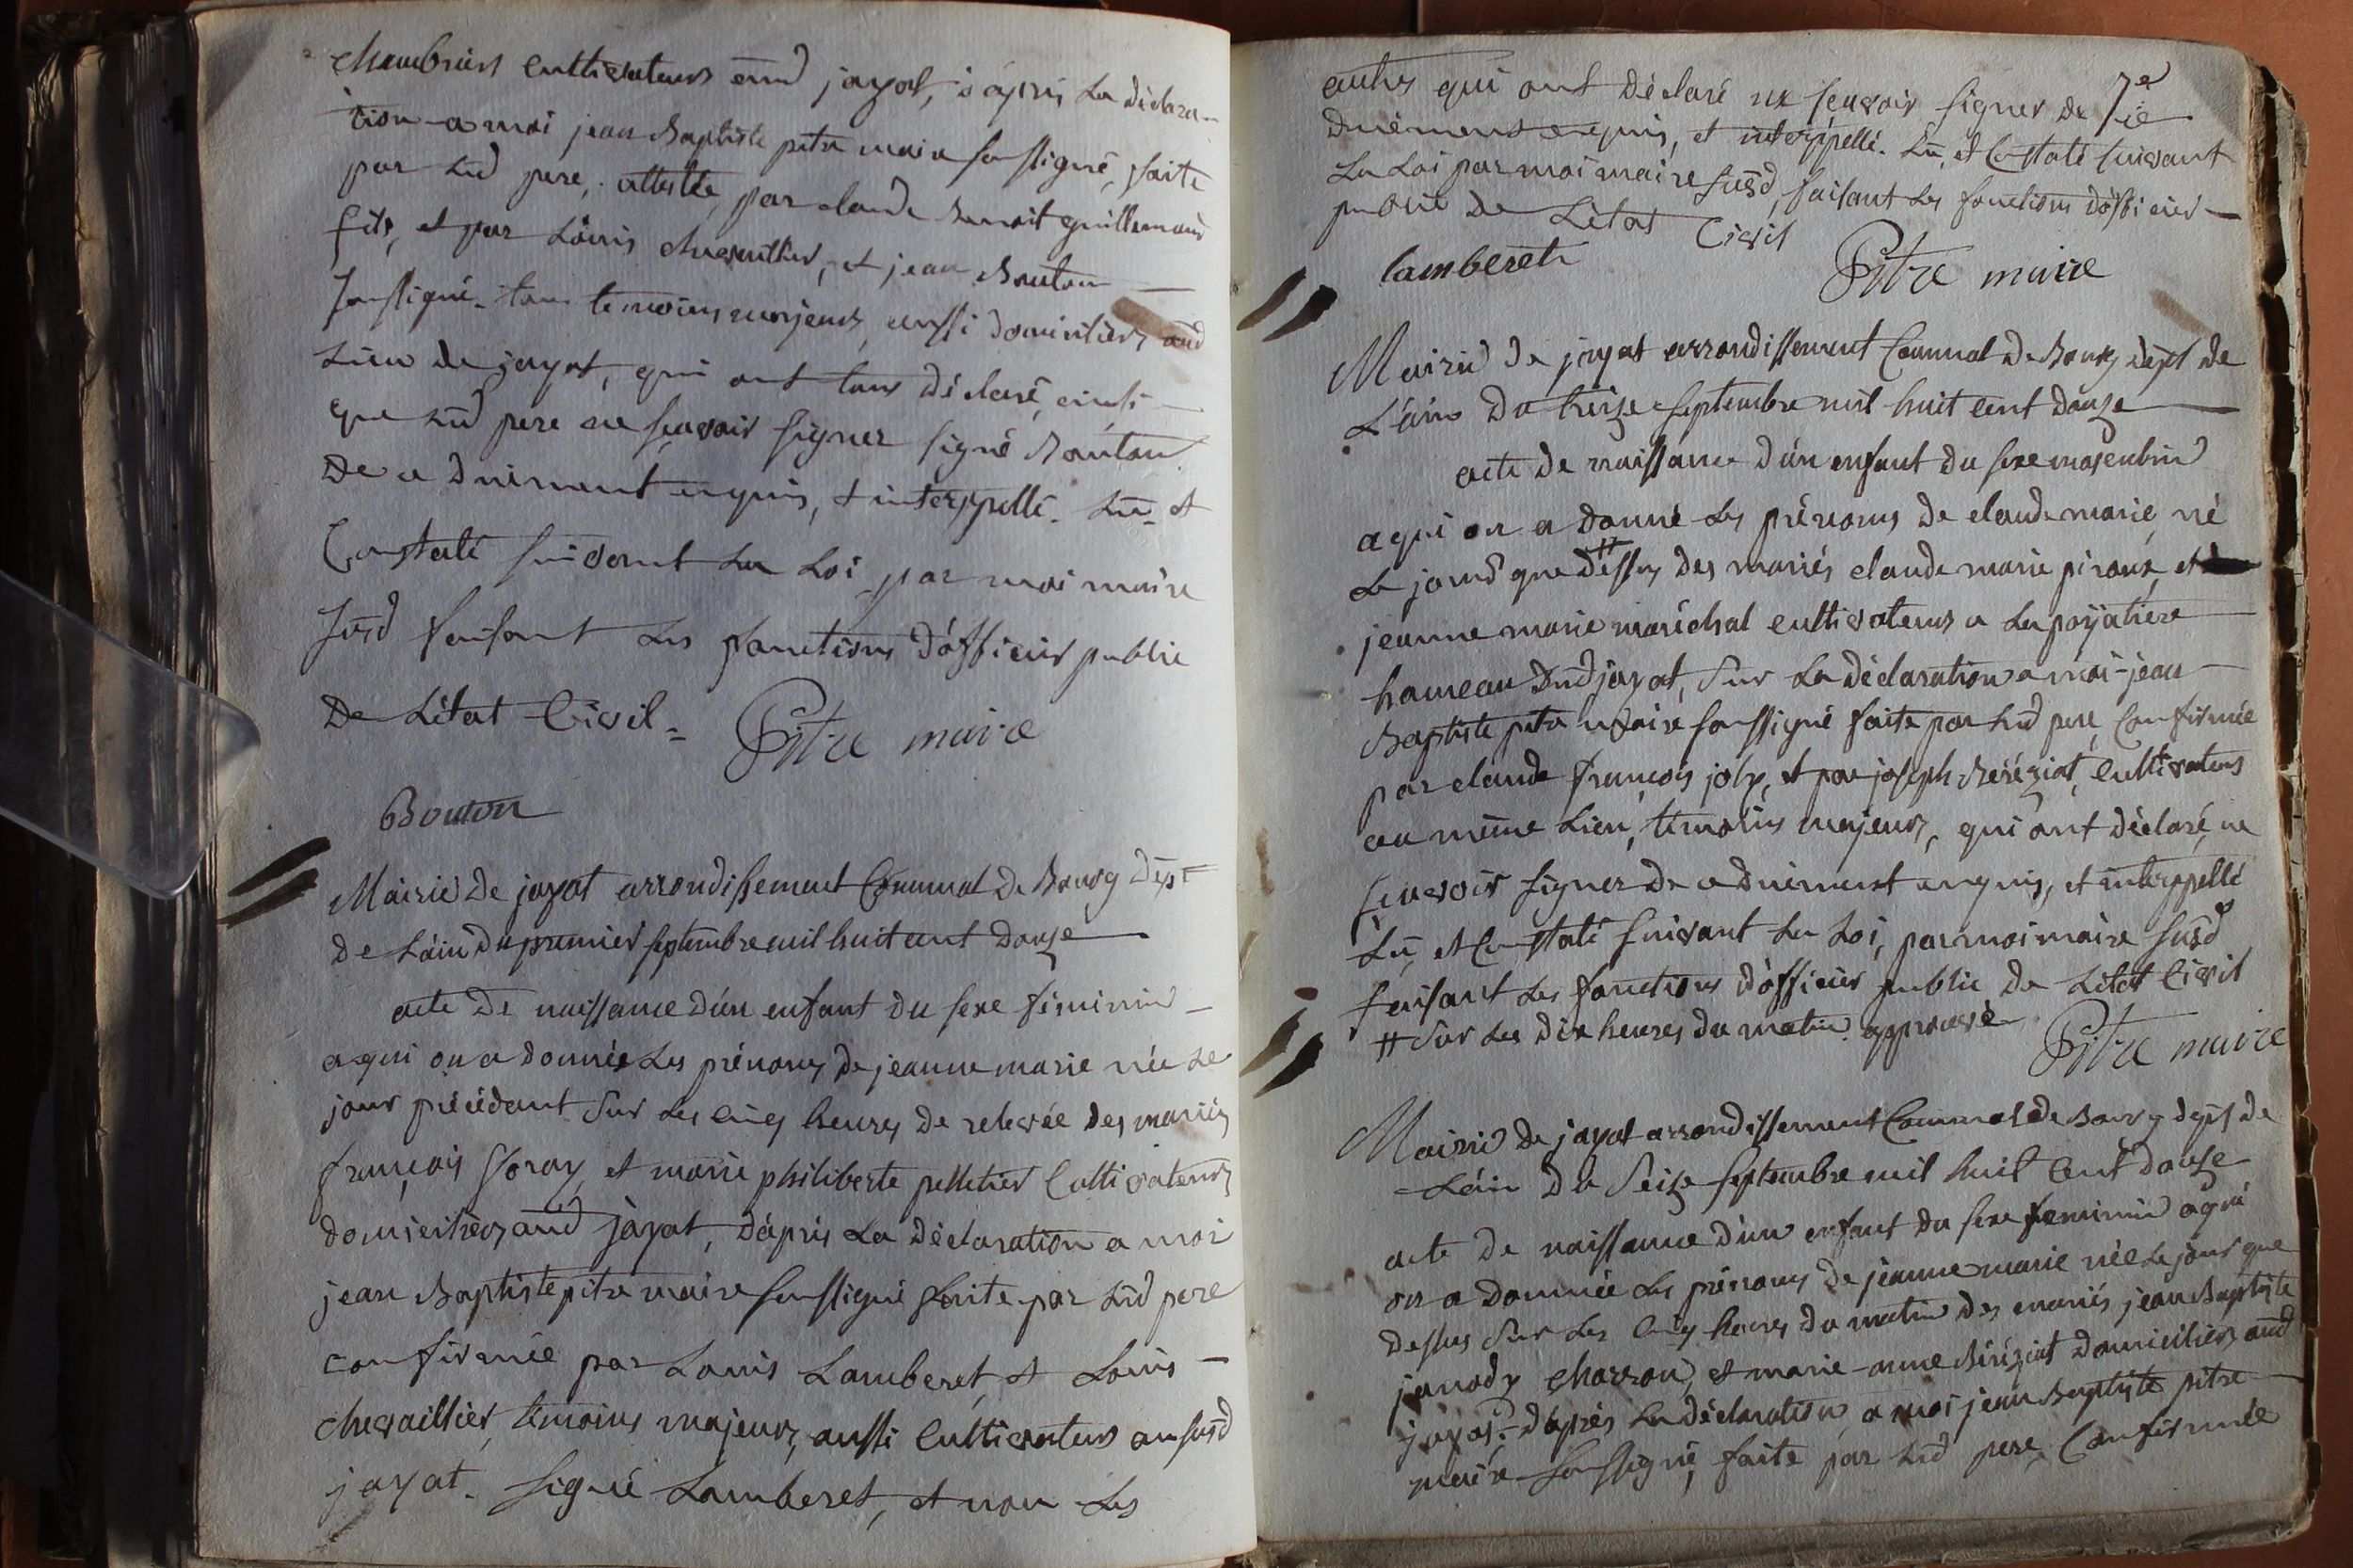 cultivateurs aud jayat, d'après la déclara-
tion a moi jean Baptiste pitre maire soussigné, faite
par lud pere, attestée par claude benoit guillemaud
fils, et par Louis chevaillier, et jean Bouton
soussigné. tous temoins majeurs, aussi domiciliers aud
Lieu de jayat, qui ont tous déclaré, ainsi
que lud pere ne scavoir signer signé Bouton
De ce duement enquis, et interppellé. Lu et
Constaté suivant La Loi par moi maire
susd faisant les fonctions d'officier public
De Létat Civil =
Pitre maire
Bouton
Mairie De jayat arrondissement Communal De Bourg Dept
de L'ain Du premier septembre mil huit cent Douze
acte De naissance d'un enfant du sexe féminin
a qui on a donnée Les prénoms De jeanne marie née Le
jour précédant Sur Les cinq heures De relevée Des mariés
françois foray et marie philiberte pelletier Cultivateurs
domiciliers aud jayat, D'après La Déclaration a moi
jean Baptiste pitre maire soussigné faite par lud pere
confirmée par Louis Lamberet et Louis
chevaillier, temoins majeurs, aussi Cultivateurs au susd
jayat. signé Lamberet, et non Les
7e
autres qui ont Déclaré ne scavoir signer De ce
Duement enquis, et interppellé. Lu, et Constaté suivant
La Loi par moi maire susd, faisant Les fonctions d'officier
public De L'état Civil
lamberet
Pitre maire
Mairie De jayat arrondissement Communal De Bourg Dept De
L'ain Du treize septembre mil huit cent Douze
acte De naissance D'un enfant Du sexe masculin
a qui on a Donné Les prénoms De claude marie, né
Le jour que # Dessus Des mariés claude marie piroux, et
jeanne marie maréchal cultivateurs a La poyatiere
hameau Dud jayat, Sur La Déclaration a moi jean
Baptiste pitre maire soussigné faite par lud pere, Confirmée
par claude françois joly, et par joseph Beréziat, Cultivateurs
au même Lieu, temoins majeurs, qui ont Déclaré, ne
scavoir signer De ce Duement enquis, et interppellé
Lu, et Constaté suivant La Loi, par moi maire susd
faisant Les fonctions D'officier public De L'état Civil
# Sur Les Dix heures Du matin. approuvé
Pitre maire
Mairie De jayat arrondissement Communal De Bourg Dept De
L'ain Du Seize septembre mil huit cent Douze
acte De naissance D'un enfant Du sexe feminin a qui
on a Donnée Les prénoms De jeanne marie née Le jour que
Dessus Sur Les cinq heures Du matin Des mariés, jean Baptiste
janody charron, et marie-anne Bériziat Domiciliers aud
jayat. D'après La Déclaration, a moi jean Baptiste pitre
maire soussigné, faite par lud pere, Confirmée